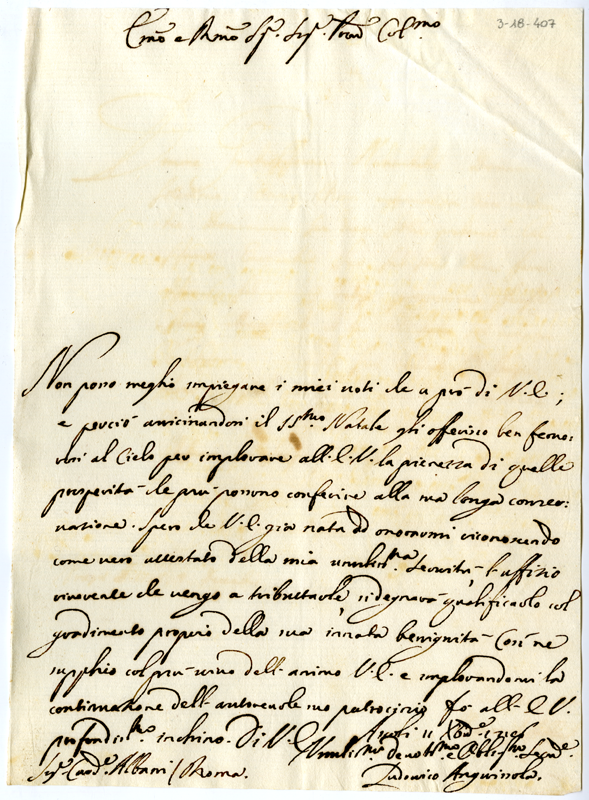 3-18-407
Emo e Rmo Sigr. Sigr. Pron Colmo
Non posso meglio impiegare i miei voti che a prò di V.E.;
e perciò avvicinandosi il SSmo Natale gli offerisco ben fervo:
rosi al Cielo per implorare all'E.V. la pienezza di quelle
prosperità che più possono conferire alla sua longa conser:
vazione. Spero che V.E. già nata ad onorarmi riconoscendo
come vero attestato della mia umilissma servitù l'uffizio
riverente che vengo a tributarle, si degnarà qualificarlo col
gradimento proprio della sua innata benignità. Così ne
supplico col più vivo dell'animo V.E. e implorandomi la
continuazione dell'autorevole suo patrocinio fò all'E.V.
profondismo inchino. Di V.E.
11 Xbre
Umilismo devotismo e Obligmo Servre
Sigr Cardl Albani / Roma.
Ludovico Anguissola.